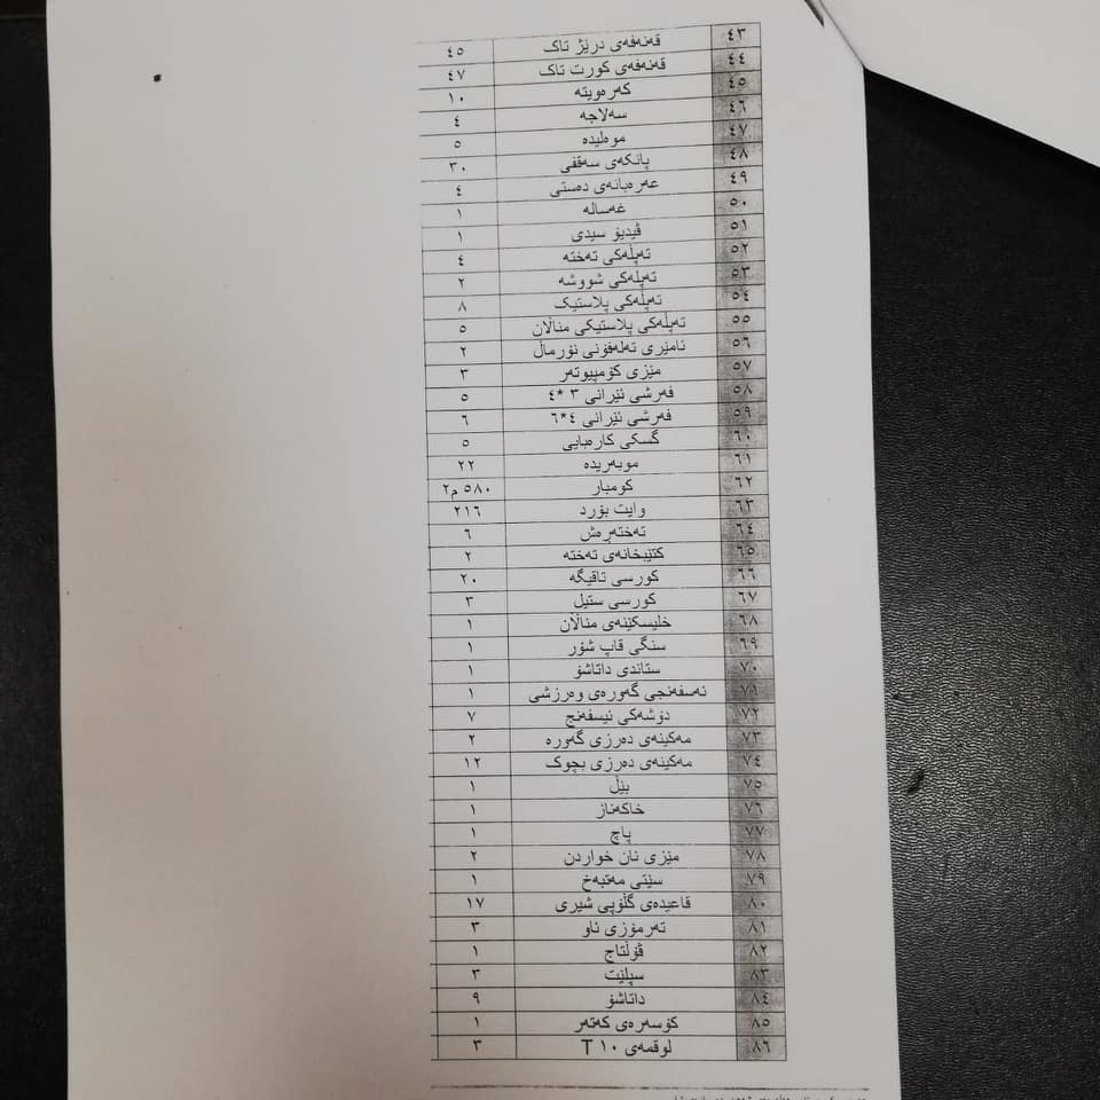 ٤٣ قەنەفەی درێژ تاک ٤٥
٤٤ قەنەفەی کورت تاک ٤٧
٤٥ کەرەویتە ١٠
٤٦ سەلاجە ٤
٤٧ موەلیدە ٥
٤٨ پانکەی سەقفی ٣٠
٤٩ عەرەبانەی دەستی ٤
٥٠ غەسالە ١
٥١ ڤیدیۆ سیدی ١
٥٢ تەپڵەکی تەختە ٤
٥٣ تەپلەکی شووشە ٢
٥٤ تەپڵەکی پلاستیک ٨
٥٥ تەپڵەکی پلاستیکی مناڵان ٥
٥٦ ئامێری تەلەفۆنی نۆرماڵ ٢
٥٧ مێزی کۆمپیوتەر ٣
٥٨ فەرشی ئێرانی ٣ *٤ ٥
٥٩ فەرشی ئێرانی ٤*٦ ٦
٦٠ گسکی کارەبایی ٥
٦١ موبەریدە ٢٢
٦٢ کومبار ٥٨٠ م٢
٦٣ وایت بۆرد ٢١٦
٦٤ تەختەڕەش ٦
٦٥ کتێبخانەی تەختە ٢
٦٦ کورسی تاقیگە ٢٠
٦٧ کورسی ستیل ٣
٦٨ خلیسکێنەی مناڵان ١
٦٩ سنگی قاپ شۆر ١
٧٠ ستاندی داتاشۆ ١
٧١ ئەسفەنجی گەورەی وەرزشی ١
٧٢ دۆشەکی ئیسفەنج ٧
٧٣ مەکینەی دەرزی گەورە ٢
٧٤ مەکینەی دەرزی بچوک ١٢
٧٥ بێڵ ١
٧٦ خاکەناز ١
٧٧ پاچ ١
٧٨ مێزی نان خواردن ٢
٧٩ سێتی مەتبەخ ١
٨٠ قاعیدەی گڵۆپی شیری ١٧
٨١ تەرمۆزی ئاو ٣
٨٢ ڤۆڵتاج ١
٨٣ سپلێت ٣
٨٤ داتاشۆ ٩
٨٥ کۆسەرەی کەتەر ١
٨٦ لوقمەی T ١٠ ٣